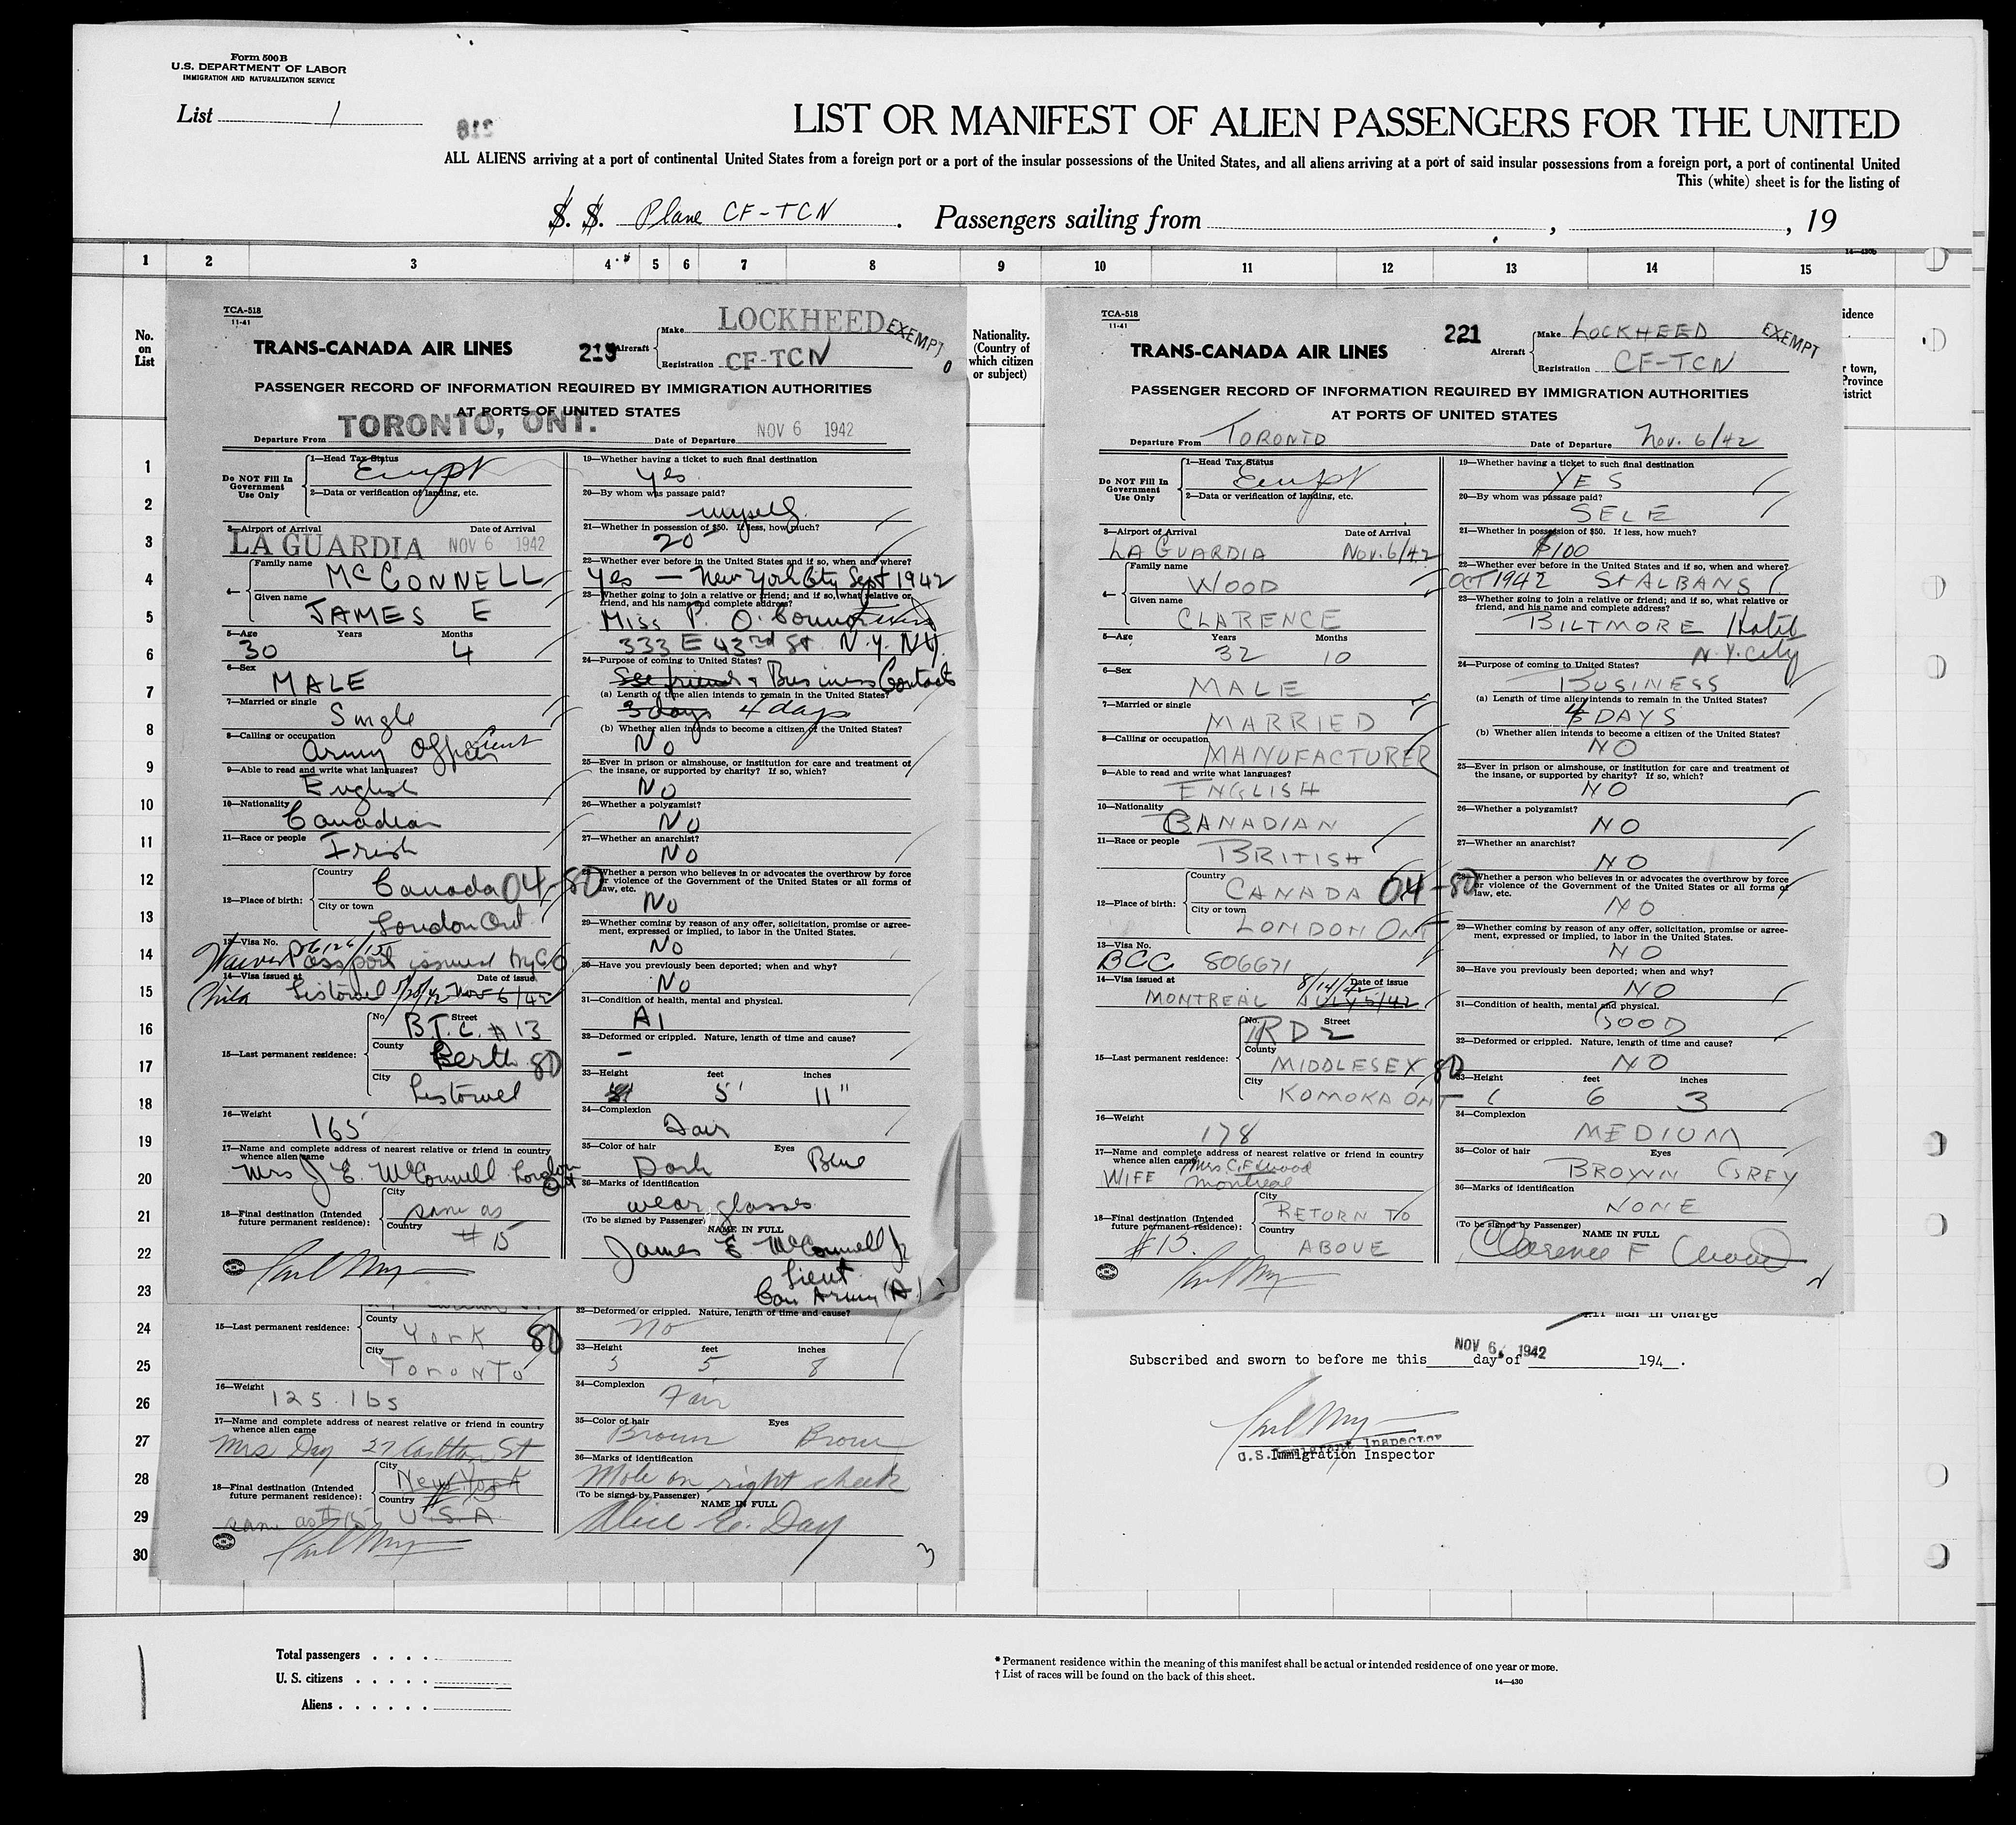 Form 500B
U.S. DEPARTMENT OF LABOR
IMMIGRATION AND NATURALIZATION SERVICE
List 1
LIST OR MANIFEST OF ALIEN PASSENGERS FOR THE UNITED
ALL ALIENS arriving at a port of continental United States from a foreign port or a port of the insular possessions of the United States, and all aliens arriving at a port of said insular possessions from a foreign port, a port of continental United
This (white) sheet is for the listing of
S. S. Plane CF-TCN. Passengers sailing from , , 19
1 2 3 4 5 6 7 8 9 10 11 12 13 14 15
No. on List
Nationality. (Country of which citizen or subject)
TCA-518
11-41
TRANS-CANADA AIR LINES
219
Aircraft
Make LOCKHEED
EXEMPT
Registration CF-TCN
PASSENGER RECORD OF INFORMATION REQUIRED BY IMMIGRATION AUTHORITIES
AT PORTS OF UNITED STATES
Departure From TORONTO, ONT. Date of Departure NOV 6 1942
Do NOT Fill In Government Use Only
1—Head Tax Status
2—Data or verification of landing, etc.
3—Airport of Arrival Date of Arrival
LA GUARDIA NOV 6 1942
4— Family name McCONNELL
Given name JAMES E
5—Age Years Months
30 4
6—Sex
MALE
7—Married or single
Single
8—Calling or occupation
Army Officer Lieut
9—Able to read and write what languages?
English
10—Nationality
Canadian
11—Race or people
Irish
12—Place of birth: Country Canada 04-80
City or town London Ont
13—Visa No.
Waiver Passport issued by C O
14—Visa issued at Date of issue
Listowel Nov 6/42
15—Last permanent residence: No. Street B.T.C. #13
County Perth 80
City Listowel
16—Weight
165
17—Name and complete address of nearest relative or friend in country whence alien came
Mrs J E. McConnell London Ont
18—Final destination (Intended future permanent residence): City same as
Country #15
19—Whether having a ticket to such final destination
Yes
20—By whom was passage paid?
myself
21—Whether in possession of $50. If less, how much?
20
22—Whether ever before in the United States and if so, when and where?
Yes — New York City Sept 1942
23—Whether going to join a relative or friend; and if so, what relative or friend, and his name and complete address?
Miss P. O'Connor
333 E 43rd St N.Y. N.Y.
24—Purpose of coming to United States?
See friends & Business Contacts
(a) Length of time alien intends to remain in the United States?
3 days 4 days
(b) Whether alien intends to become a citizen of the United States?
No
25—Ever in prison or almshouse, or institution for care and treatment of the insane, or supported by charity? If so, which?
No
26—Whether a polygamist?
No
27—Whether an anarchist?
No
28—Whether a person who believes in or advocates the overthrow by force or violence of the Government of the United States or all forms of law, etc.
No
29—Whether coming by reason of any offer, solicitation, promise or agreement, expressed or implied, to labor in the United States.
No
30—Have you previously been deported; when and why?
No
31—Condition of health, mental and physical.
A1
32—Deformed or crippled. Nature, length of time and cause?
-
33—Height feet inches
5' 11"
34—Complexion
Fair
35—Color of hair Eyes
Dark Blue
36—Marks of identification
wear glasses
(To be signed by Passenger)
NAME IN FULL
James E McConnell Jr
Lieut.
Can Army (A)
15—Last permanent residence:
County York 80
City Toronto
16—Weight
125 lbs
17—Name and complete address of nearest relative or friend in country whence alien came
Mrs Day 27 Carlton St
18—Final destination (Intended future permanent residence): City New York
Country U.S.A.
same as #15
32—Deformed or crippled. Nature, length of time and cause?
no
33—Height feet inches
5 5 8
34—Complexion
Fair
35—Color of hair Eyes
Brown Brown
36—Marks of identification
Mole on right cheek
(To be signed by Passenger)
NAME IN FULL
Alice E. Day
3
TCA-518
11-41
TRANS-CANADA AIR LINES
221
Aircraft
Make LOCKHEED
EXEMPT
Registration CF-TCN
PASSENGER RECORD OF INFORMATION REQUIRED BY IMMIGRATION AUTHORITIES
AT PORTS OF UNITED STATES
Departure From TORONTO Date of Departure Nov. 6/42
Do NOT Fill In Government Use Only
1—Head Tax Status
2—Data or verification of landing, etc.
3—Airport of Arrival Date of Arrival
LA GUARDIA Nov. 6/42
4— Family name WOOD
Given name CLARENCE
5—Age Years Months
32 10
6—Sex
MALE
7—Married or single
MARRIED
8—Calling or occupation
MANUFACTURER
9—Able to read and write what languages?
ENGLISH
10—Nationality
CANADIAN
11—Race or people
BRITISH
12—Place of birth: Country CANADA 04-80
City or town LONDON ONT
13—Visa No.
BCC 806671
14—Visa issued at Date of issue
MONTREAL 8/14/42 JULY 5/42
15—Last permanent residence: No. Street RD 2
County MIDDLESEX 80
City KOMOKA ONT
16—Weight
178
17—Name and complete address of nearest relative or friend in country whence alien came
WIFE Mrs. C.F. Wood
Montreal
18—Final destination (Intended future permanent residence): City RETURN TO
Country ABOVE
#15.
19—Whether having a ticket to such final destination
YES
20—By whom was passage paid?
SELF
21—Whether in possession of $50. If less, how much?
$100
22—Whether ever before in the United States and if so, when and where?
OCT 1942 ST ALBANS
23—Whether going to join a relative or friend; and if so, what relative or friend, and his name and complete address?
BILTMORE Hotel
N.Y. City
24—Purpose of coming to United States?
BUSINESS
(a) Length of time alien intends to remain in the United States?
4 DAYS
(b) Whether alien intends to become a citizen of the United States?
NO
25—Ever in prison or almshouse, or institution for care and treatment of the insane, or supported by charity? If so, which?
NO
26—Whether a polygamist?
NO
27—Whether an anarchist?
NO
28—Whether a person who believes in or advocates the overthrow by force or violence of the Government of the United States or all forms of law, etc.
NO
29—Whether coming by reason of any offer, solicitation, promise or agreement, expressed or implied, to labor in the United States.
NO
30—Have you previously been deported; when and why?
NO
31—Condition of health, mental and physical.
GOOD
32—Deformed or crippled. Nature, length of time and cause?
NO
33—Height feet inches
6 3
34—Complexion
MEDIUM
35—Color of hair Eyes
BROWN GREY
36—Marks of identification
NONE
(To be signed by Passenger)
NAME IN FULL
Clarence F Wood
man in Charge
Subscribed and sworn to before me this day of NOV 6, 1942 194 .
U.S. Immigrant Inspector
Immigration Inspector
1 2 3 4 5 6 7 8 9 10 11 12 13 14 15 16 17 18 19 20 21 22 23 24 25 26 27 28 29 30
Total passengers . . . .
U. S. citizens . . . . .
Aliens . . . . . .
* Permanent residence within the meaning of this manifest shall be actual or intended residence of one year or more.
† List of races will be found on the back of this sheet.
14—430